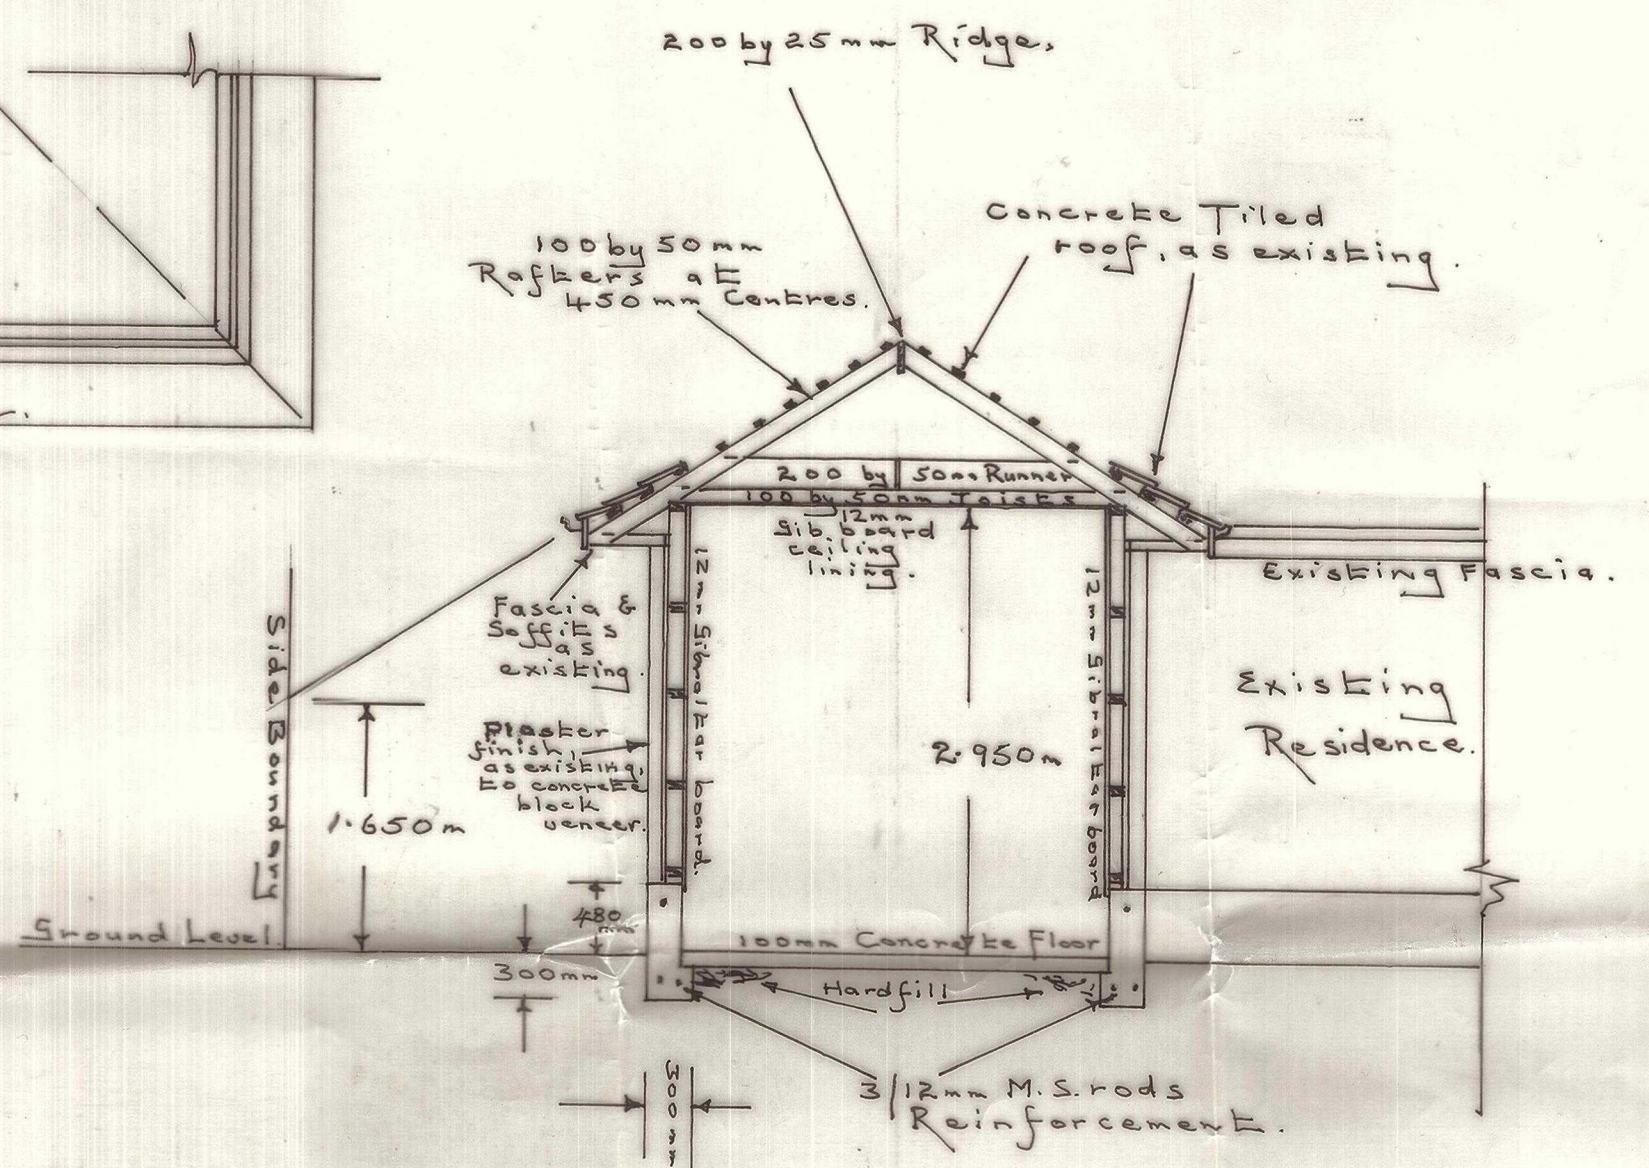 200 by 25 mm Ridge.
Concrete Tiled
roof, as existing.
100 by 50 mm
Rafters at
450 mm Centres.
200 by 50mm Runner
100 by 50mm Joists
12mm
Gib. board
ceiling
lining.
Existing Fascia.
Fascia &
Soffits
as
existing.
12mm Gibraltar board.
12mm Gibraltar board
Side Boundary
Existing
Residence.
Plaster
finish,
as existing,
to concrete
block
veneer.
2.950m
1.650m
480
mm
Ground Level.
100mm Concrete Floor
300mm
Hardfill
300mm
3/12mm M.S. rods
Reinforcement.